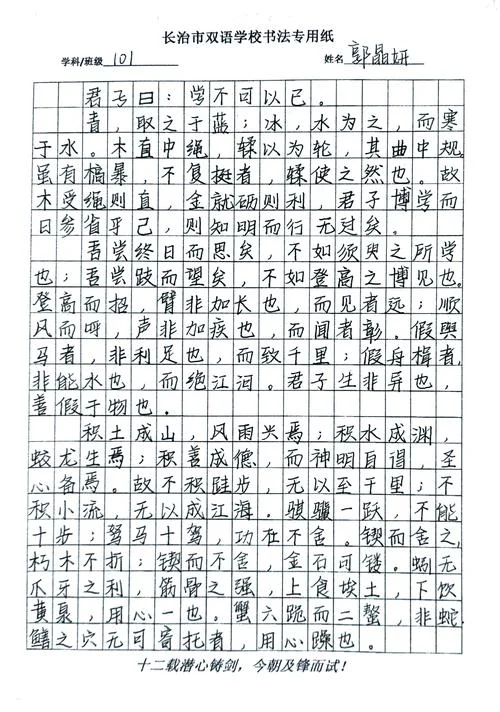 长治市双语学校书法专用纸
学科/班级 101 姓名 郭晶妍
君子曰：学不可以已。
青，取之于蓝；冰，水为之，而寒
于水。木直中绳，𫐓以为轮，其曲中规。
虽有槁暴，不复挺者，𫐓使之然也。故
木受绳则直，金就砺则利，君子博学而
日参省乎己，则知明而行无过矣。
吾尝终日而思矣，不如须臾之所学
也；吾尝跂而望矣，不如登高之博见也。
登高而招，臂非加长也，而见者远；顺
风而呼，声非加疾也，而闻者彰。假舆
马者，非利足也，而致千里；假舟楫者，
非能水也，而绝江河。君子生非异也，
善假于物也。
积土成山，风雨兴焉；积水成渊，
蛟龙生焉；积善成德，而神明自得，圣
心备焉。故不积跬步，无以至千里；不
积小流，无以成江海。骐骥一跃，不能
十步；驽马十驾，功在不舍。锲而舍之，
朽木不折；锲而不舍，金石可镂。蚓无
爪牙之利，筋骨之强，上食埃土，下饮
黄泉，用心一也。蟹六跪而二螯，非蛇
鳝之穴无可寄托者，用心躁也。
十二载潜心铸剑，今朝及锋而试！